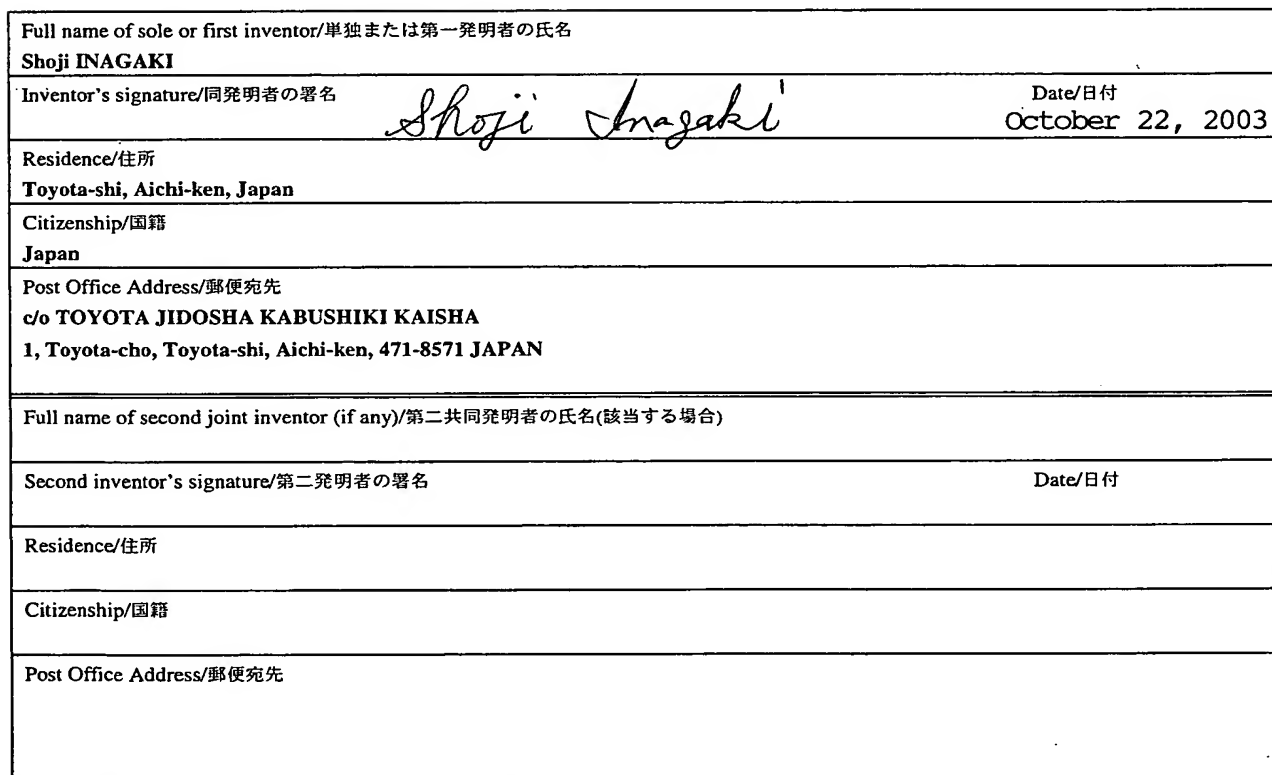 Full name of sole or first inventor/単独または第一発明者の氏名
Shoji INAGAKI
Inventor's signature/同発明者の署名 Shoji Inagaki Date/日付
October 22, 2003
Residence/住所
Toyota-shi, Aichi-ken, Japan
Citizenship/国籍
Japan
Post Office Address/郵便宛先
c/o TOYOTA JIDOSHA KABUSHIKI KAISHA
1, Toyota-cho, Toyota-shi, Aichi-ken, 471-8571 JAPAN
Full name of second joint inventor (if any)/第二共同発明者の氏名(該当する場合)
Second inventor's signature/第二発明者の署名 Date/日付
Residence/住所
Citizenship/国籍
Post Office Address/郵便宛先